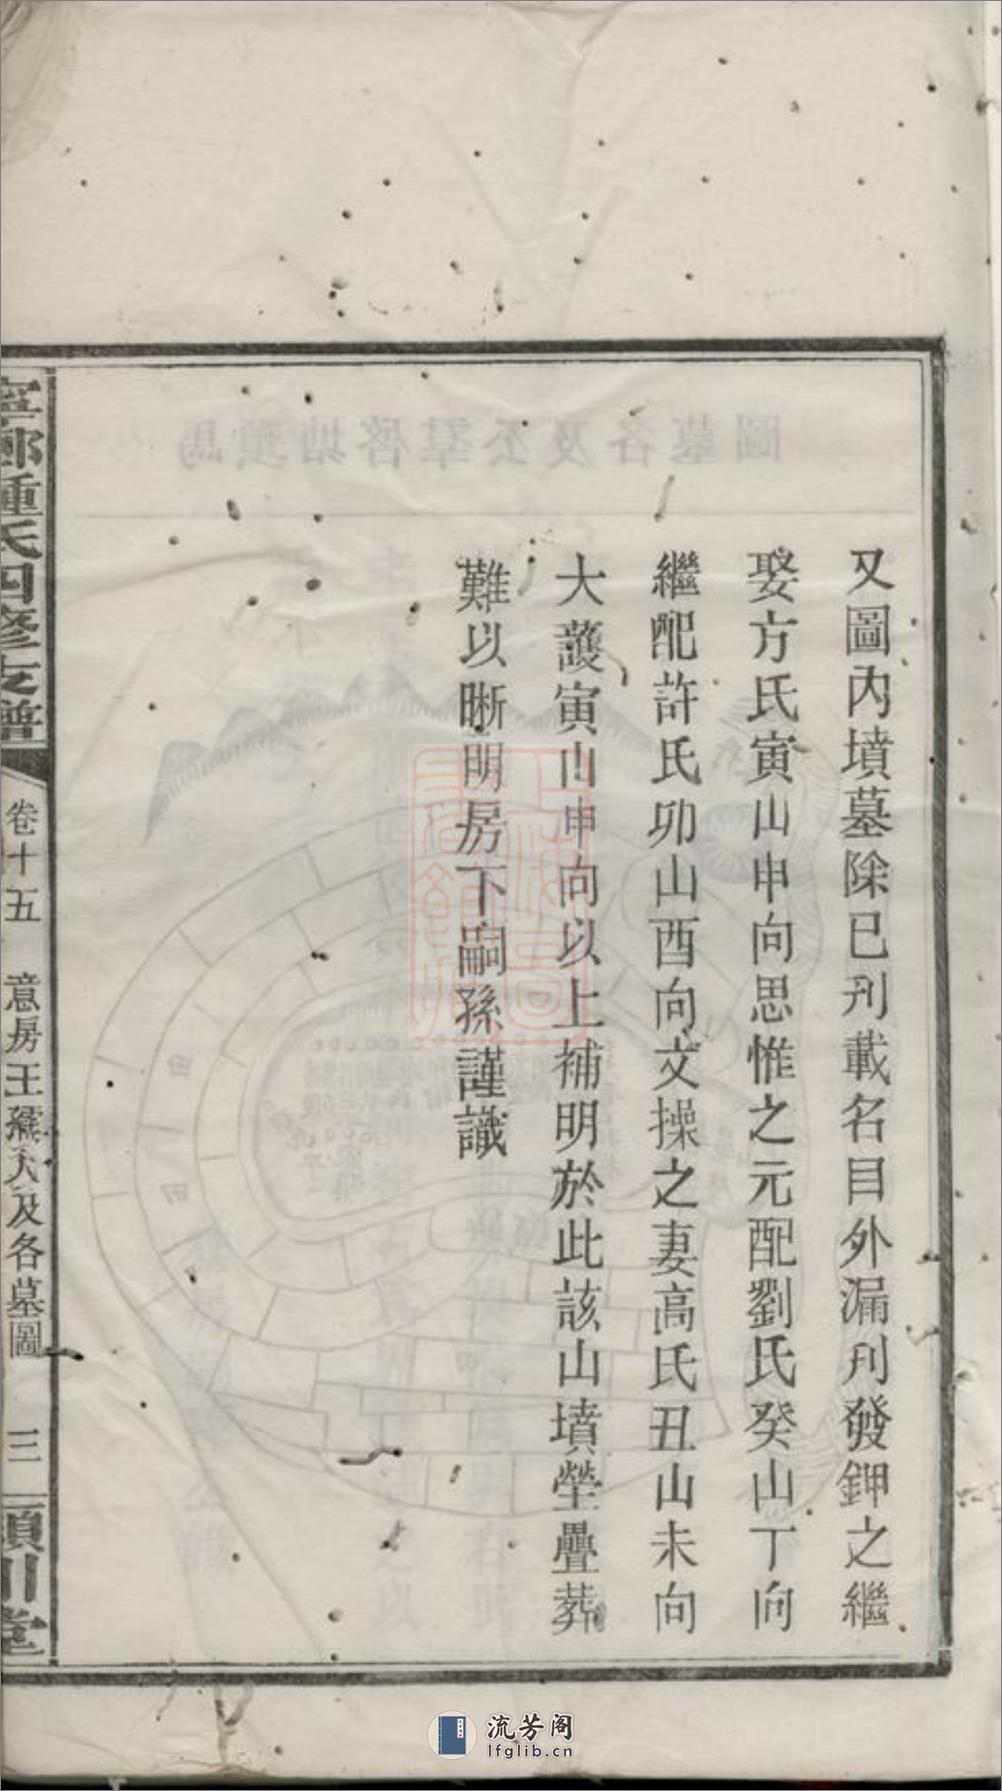 又圖內墳墓除已刋載名目外漏刋發鉀之繼
娶方氏寅山申向思惟之元配劉氏癸山丁向
繼配許氏卯山酉向文操之妻高氏丑山未向
大護寅山申向以上補明於此該山墳塋疊葬
難以晰明房下嗣孫謹識
寧鄉鍾氏四修支譜
卷十五 意房王孺人及各墓圖 三
潁川堂
馬頭坳啓羣公及各墓圖
流芳阁
lfglib.cn